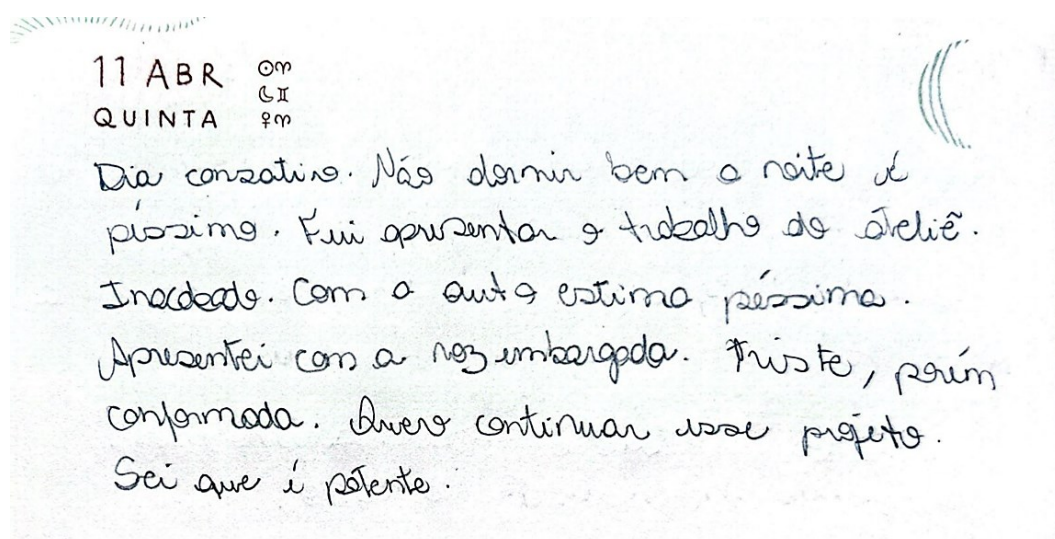 11 ABR ☉♈
☾♊
QUINTA ♀♈
Dia cansativo. Não dormir bem a noite é
péssimo. Fui apresentar o trabalho do ateliê.
Inacabado. Com a auto estima péssima.
Apresentei com a voz embargada. Triste, porém
conformada. Quero continuar esse projeto.
Sei que é potente.